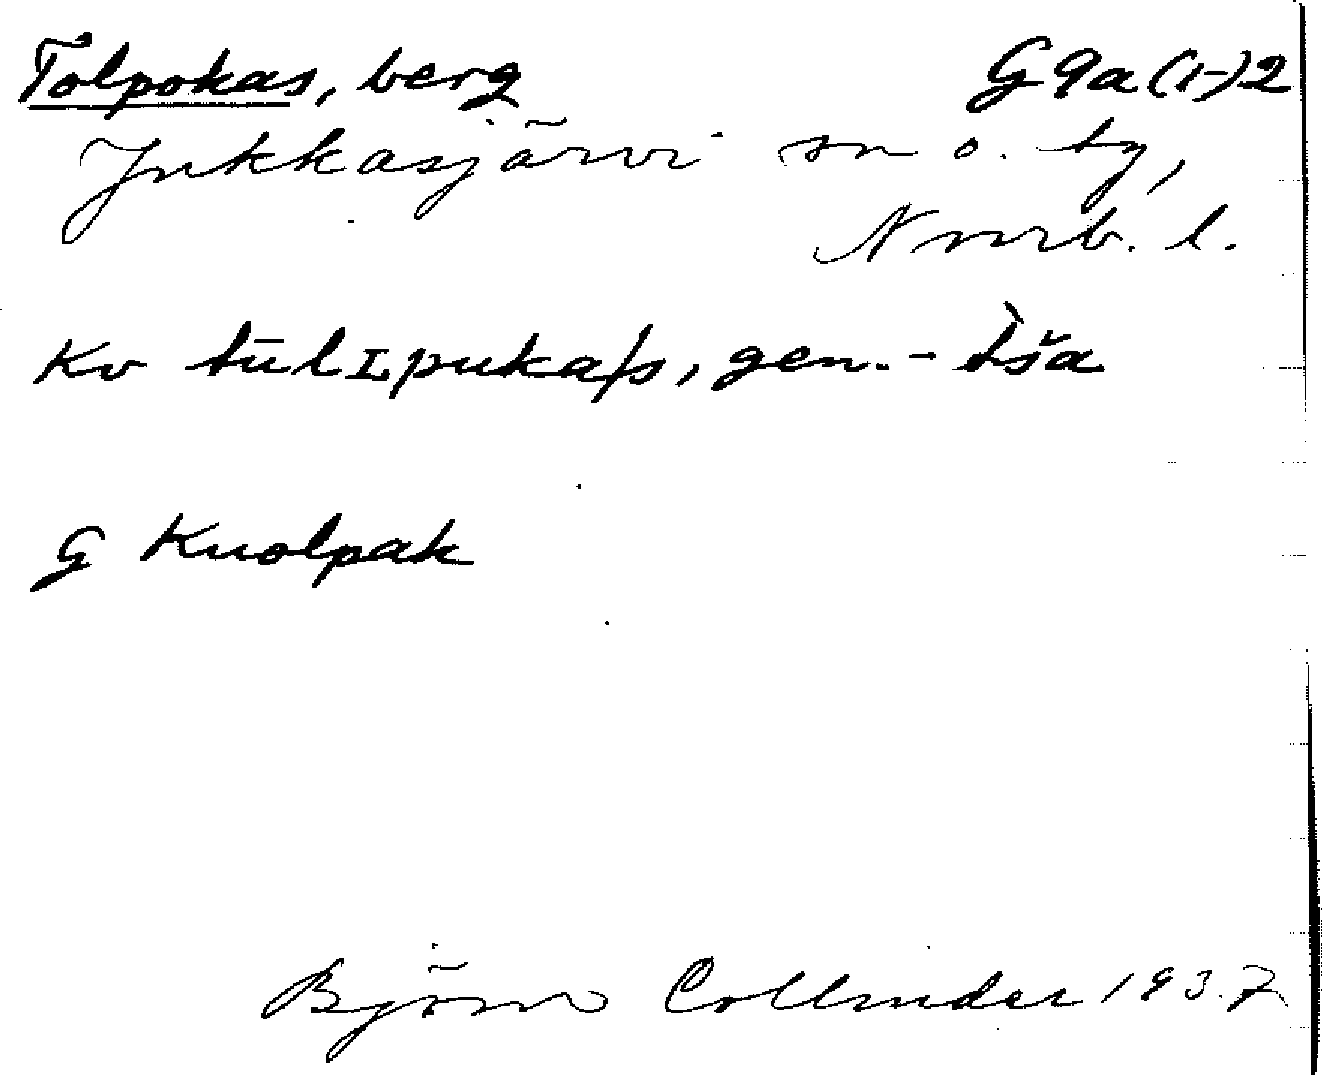 Tolpokas, berg G9a(1-)2
Jukkasjärvi sn o. tg,
Norrb. l.
Kv tūlɪpuka/s, gen. -t̀ša
G Kuolpak
Björn Collinder 1937